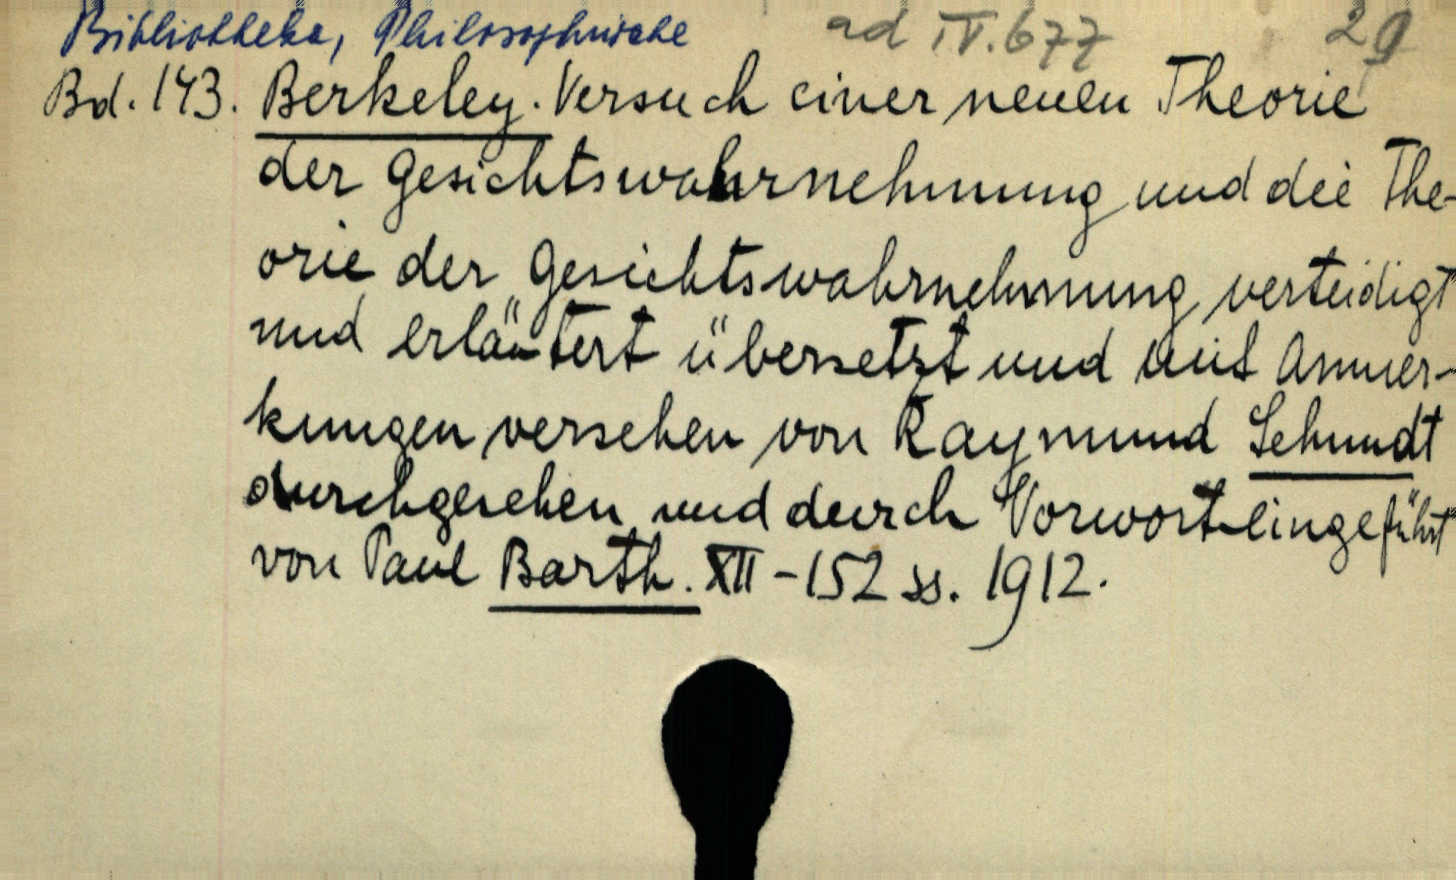 Bibliotheka, Philosophische ad IV.677 29
Bd. 143. Berkeley. Versuch einer neuen Theorie
der Gesichtswahrnehmung und die The-
orie der Gesichtswahrnehmung verteidigt
und erläutert übersetzt und mit Anmer-
kungen versehen von Raymund Schmidt
durchgesehen und durch Vorwort eingeführt
von Paul Barth. XII - 152 ss. 1912.